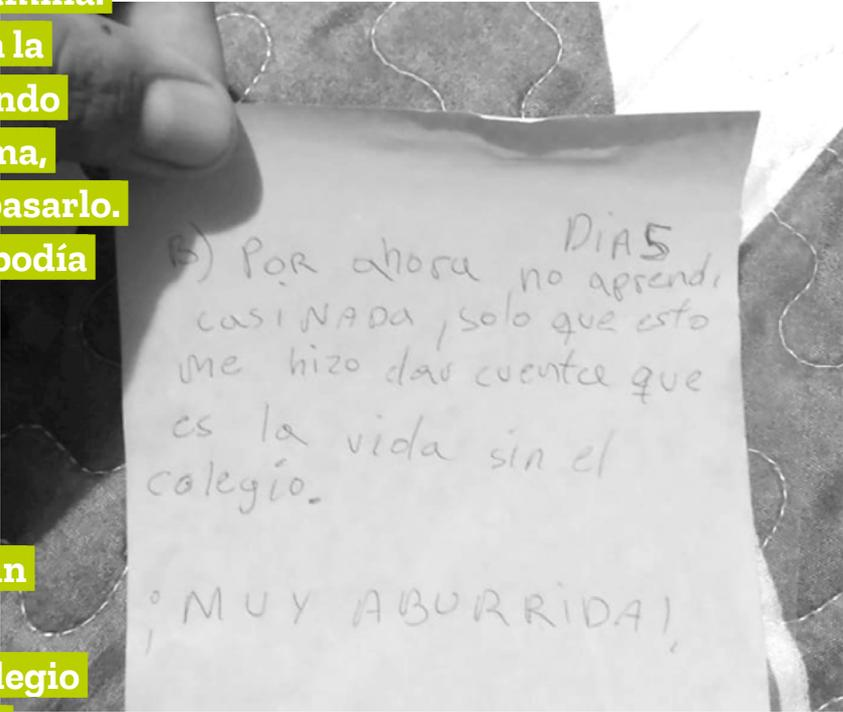 a la
ndo
ma,
pasarlo.
podía
DiA5
B) POR ahora no aprendi
casi NADa, solo que esto
me hizo dar cuenta que
es la vida sin el
colegio.
¡MUY ABURRiDA!